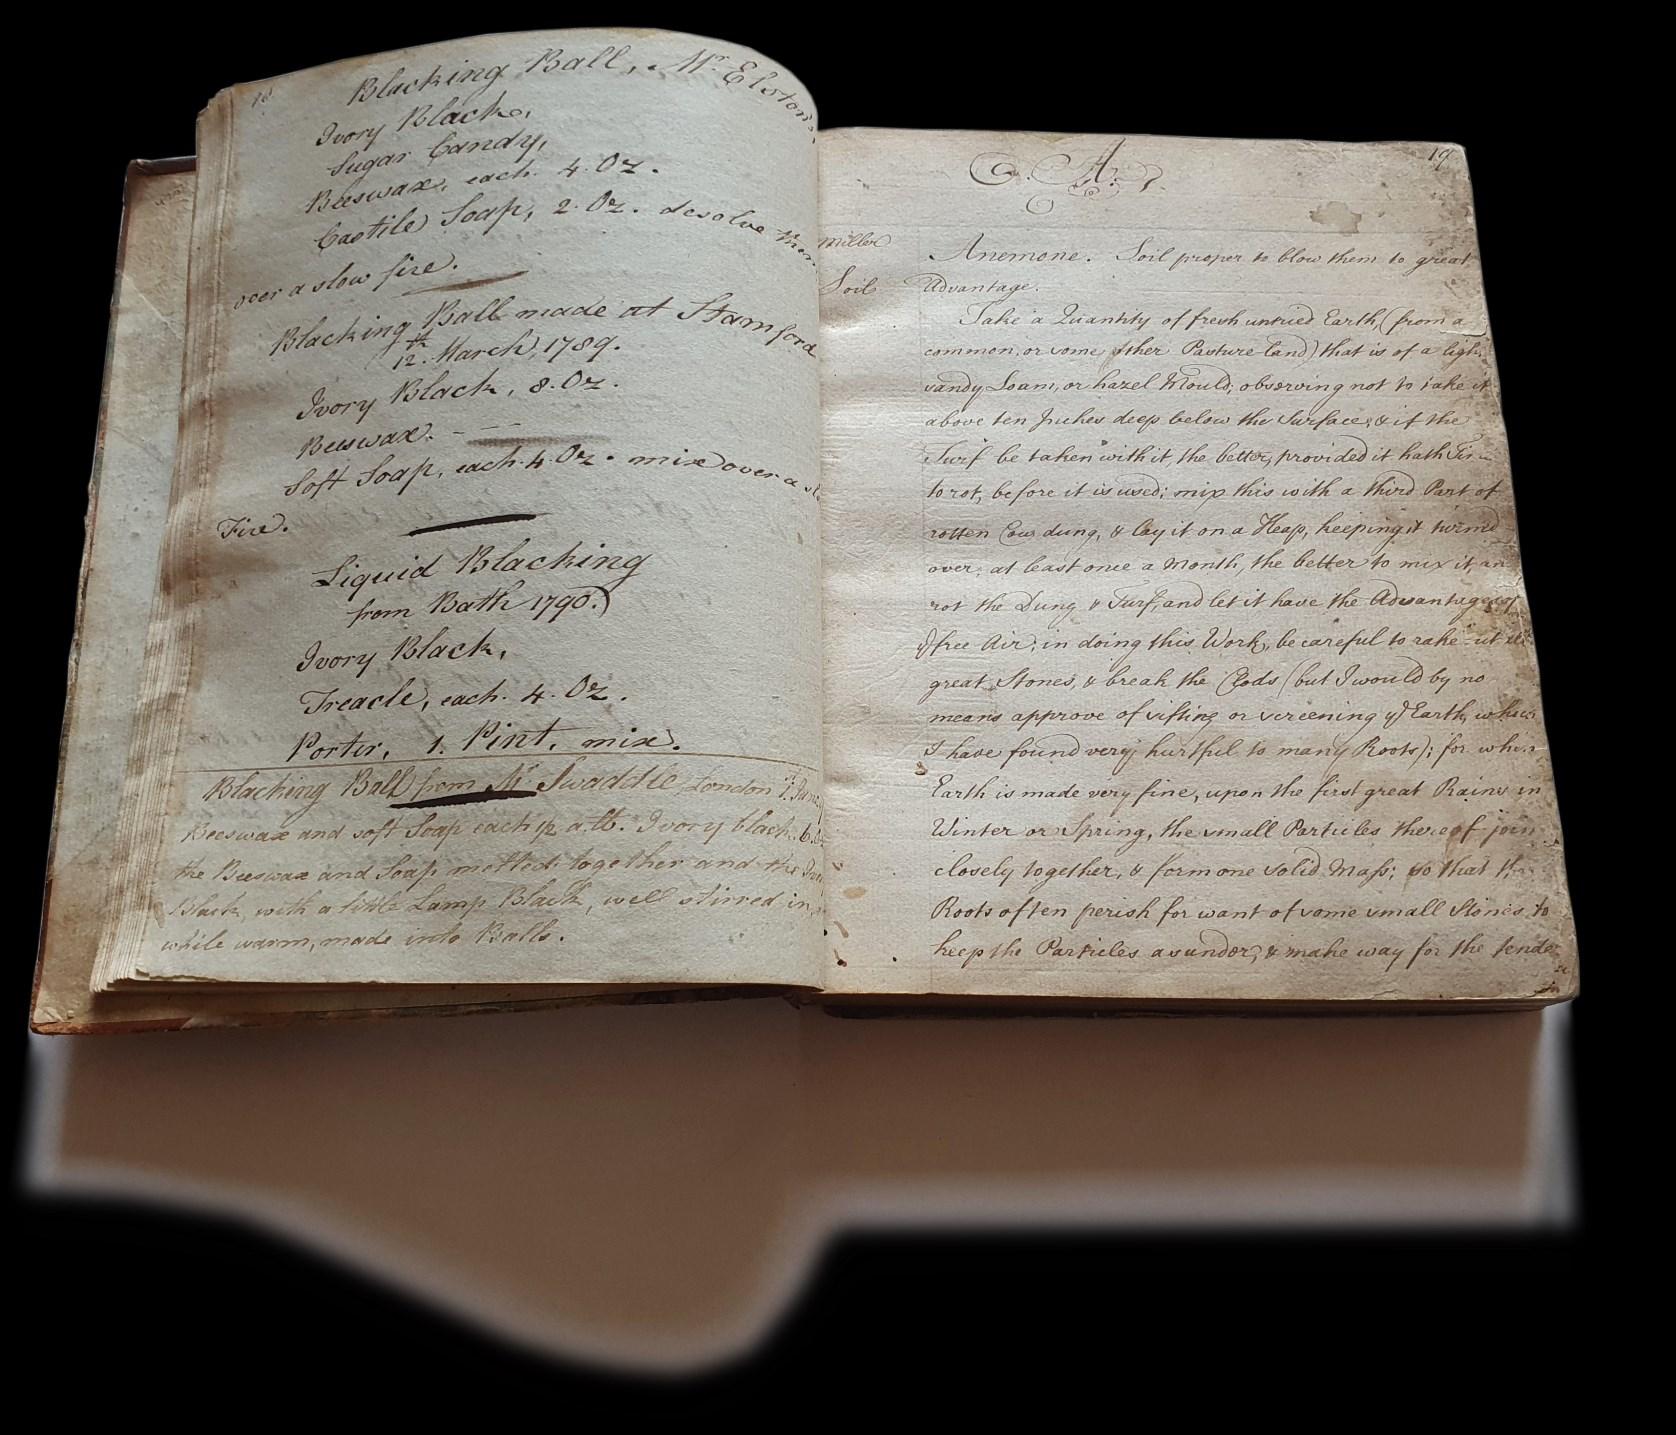 18
Blacking Ball, Mr Elston's
Ivory Black,
Sugar Candy,
Beeswax, each. 4. Oz.
Castile Soap, 2. Oz. desolve them
over a slow fire.
Blacking Ball made at Stamford
12.th March, 1789.
Ivory Black, 8. Oz.
Beeswax. - --
Soft Soap, each. 4. Oz. mix over a
Fire.
Liquid Blacking
from Bath 1790.)
Ivory Black,
Treacle, each. 4. Oz.
Porter, 1. Pint, mix.
Blacking Ball from Mr Swaddle, London
Beeswax and soft Soap each ½ a lb. Ivory black 6.
the Beeswax and Soap melted together and the
Black, with a little Lamp Black, well stirred in,
while warm, made into Balls.
19
A.
Miller Anemone. Soil proper to blow them to great
Soil Advantage.
Take a Quantity of fresh untried Earth, (from a
common, or some other Pasture land) that is of a ligh
sandy Loam, or hazel Mould; observing not to take it
above ten Inches deep below the Surface; & if the
Turf be taken with it, the better, provided it hath
to rot, before it is used; mix this with a third Part of
rotten Cow dung, & lay it on a Heap, keeping it turned
over, at least once a Month, the better to mix it an
rot the Dung & Turf, and let it have the Advantages of
ye free Air; in doing this Work, be careful to rake out
great Stones, & break the Clods (but I would by no
means approve of sifting or screening ye Earth, which
I have found very hurtful to many Roots); for when
Earth is made very fine, upon the first great Rains in
Winter or Spring, the small Particles thereof join
closely together, & form one solid Mass; so that th
Roots often perish for want of some small Stones to
keep the Particles asunder, & make way for the tende